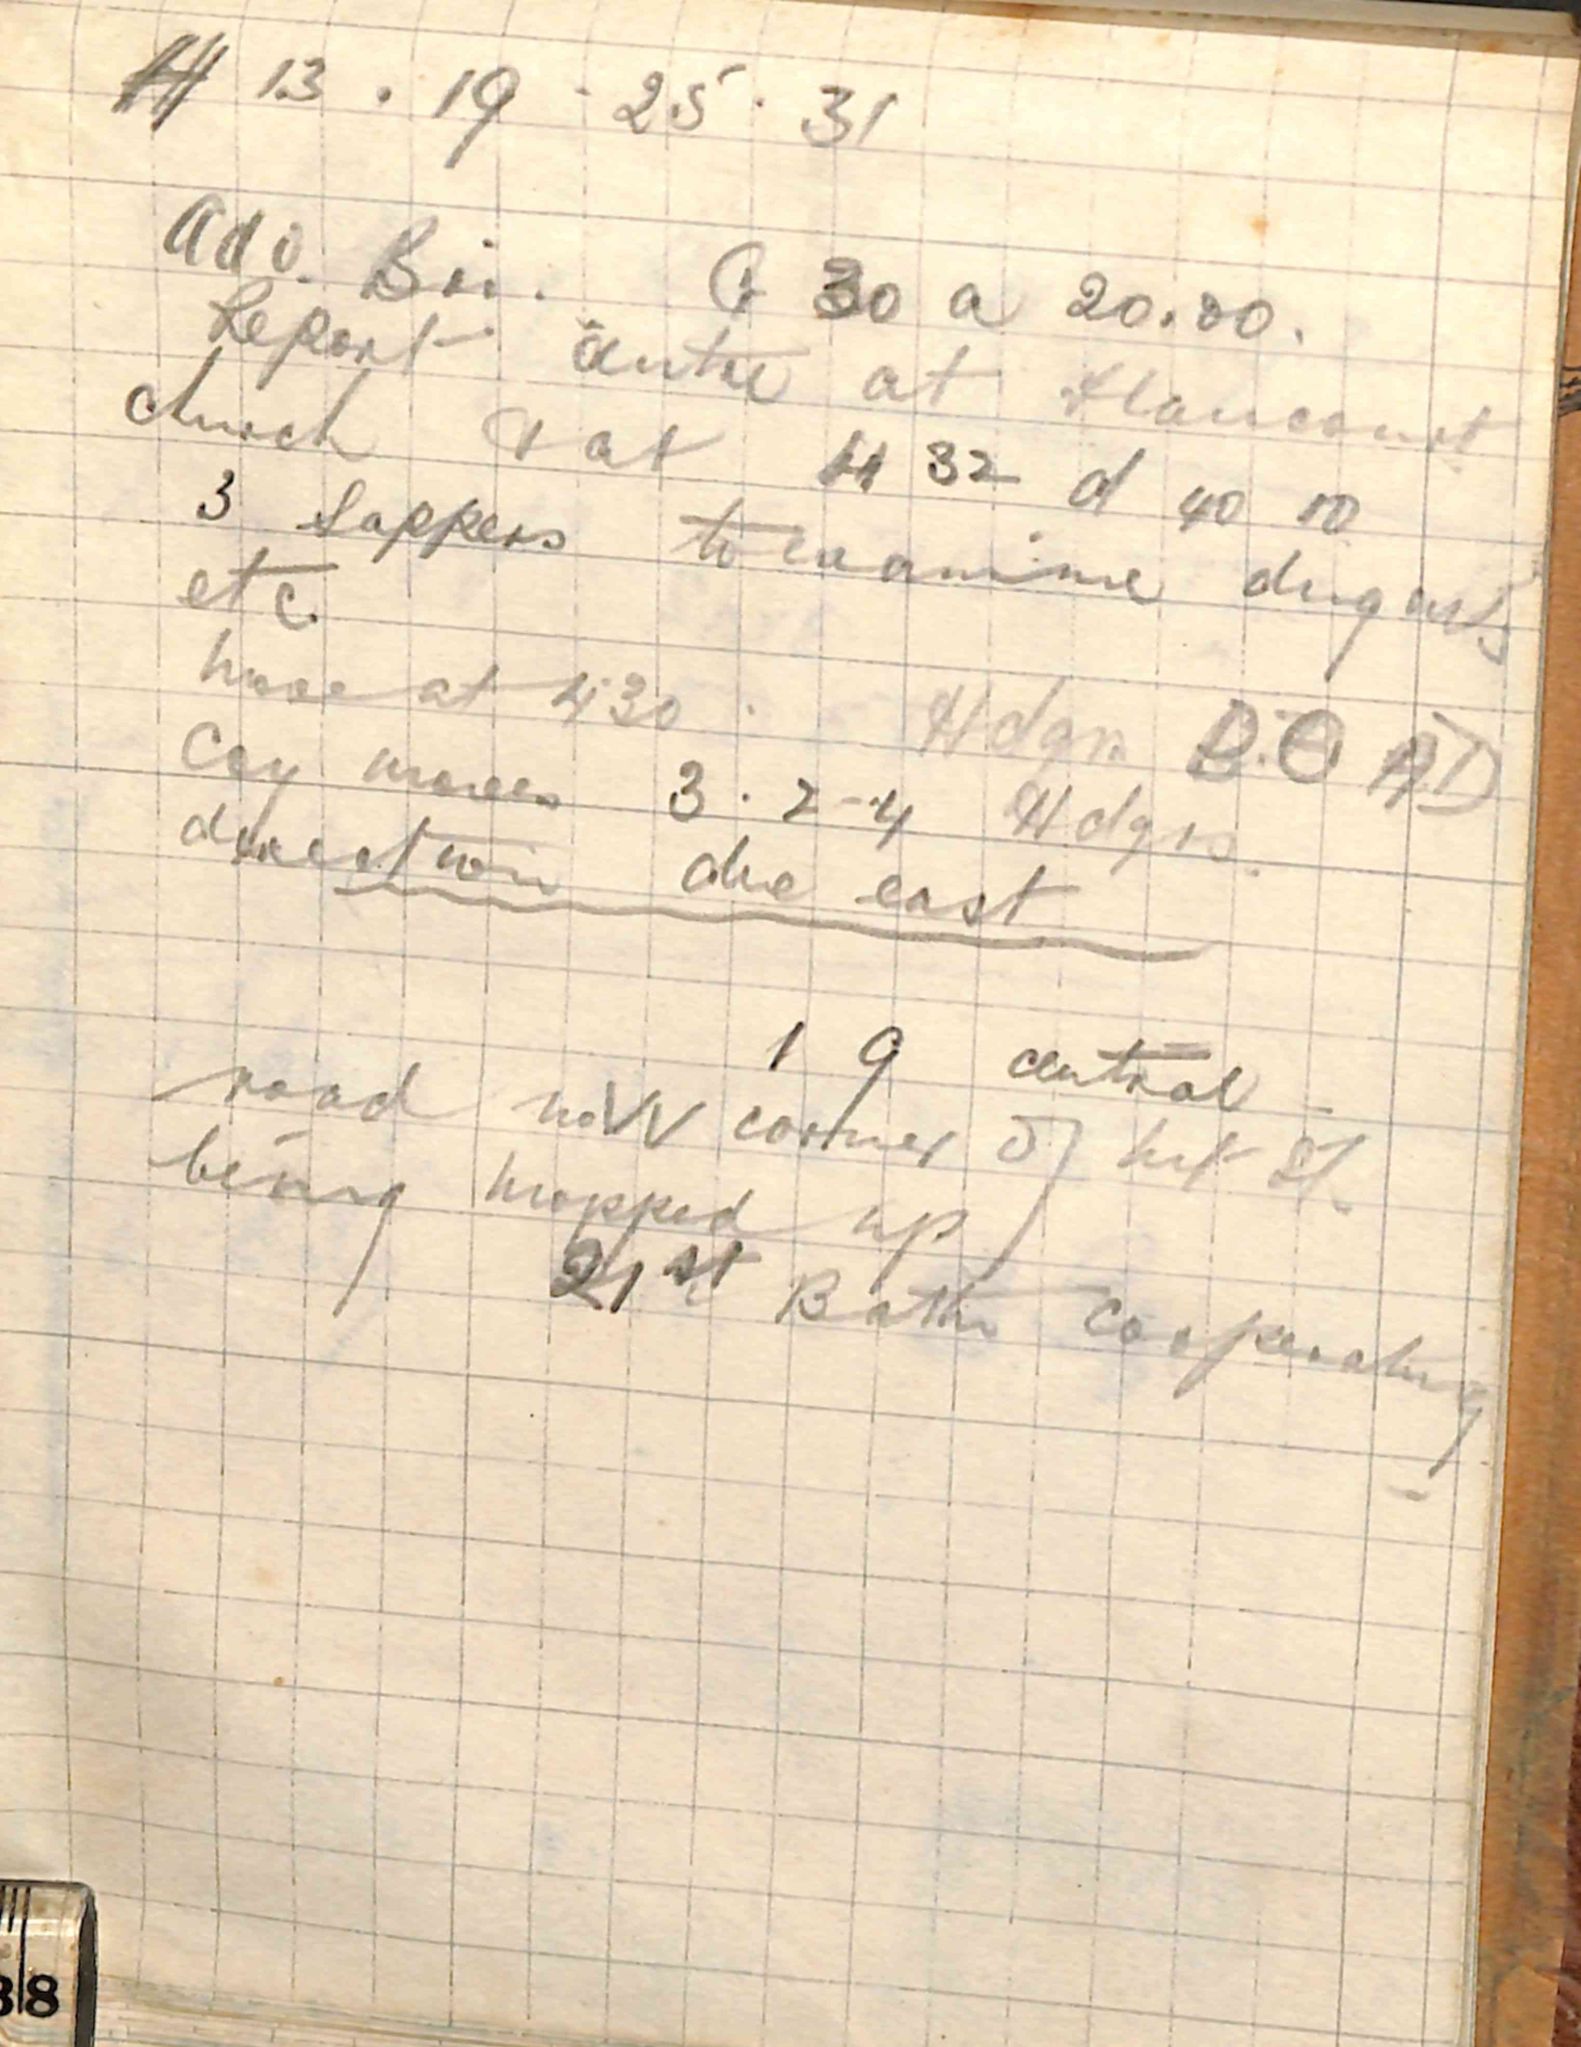 H 13 . 19 . 25 . 31
Adv. Bri. G 30 a 20.00.
Report centre at Hancourt
church & at H 32 d 40 10
3 Sappers to examine dugouts
etc.
move at 4.30. Hdqrs
Coy moves 3 . 2 - 4 Hdqrs.
direction due east
19 central
road N.W corner of
being mopped up
21st Battn cooperating
38